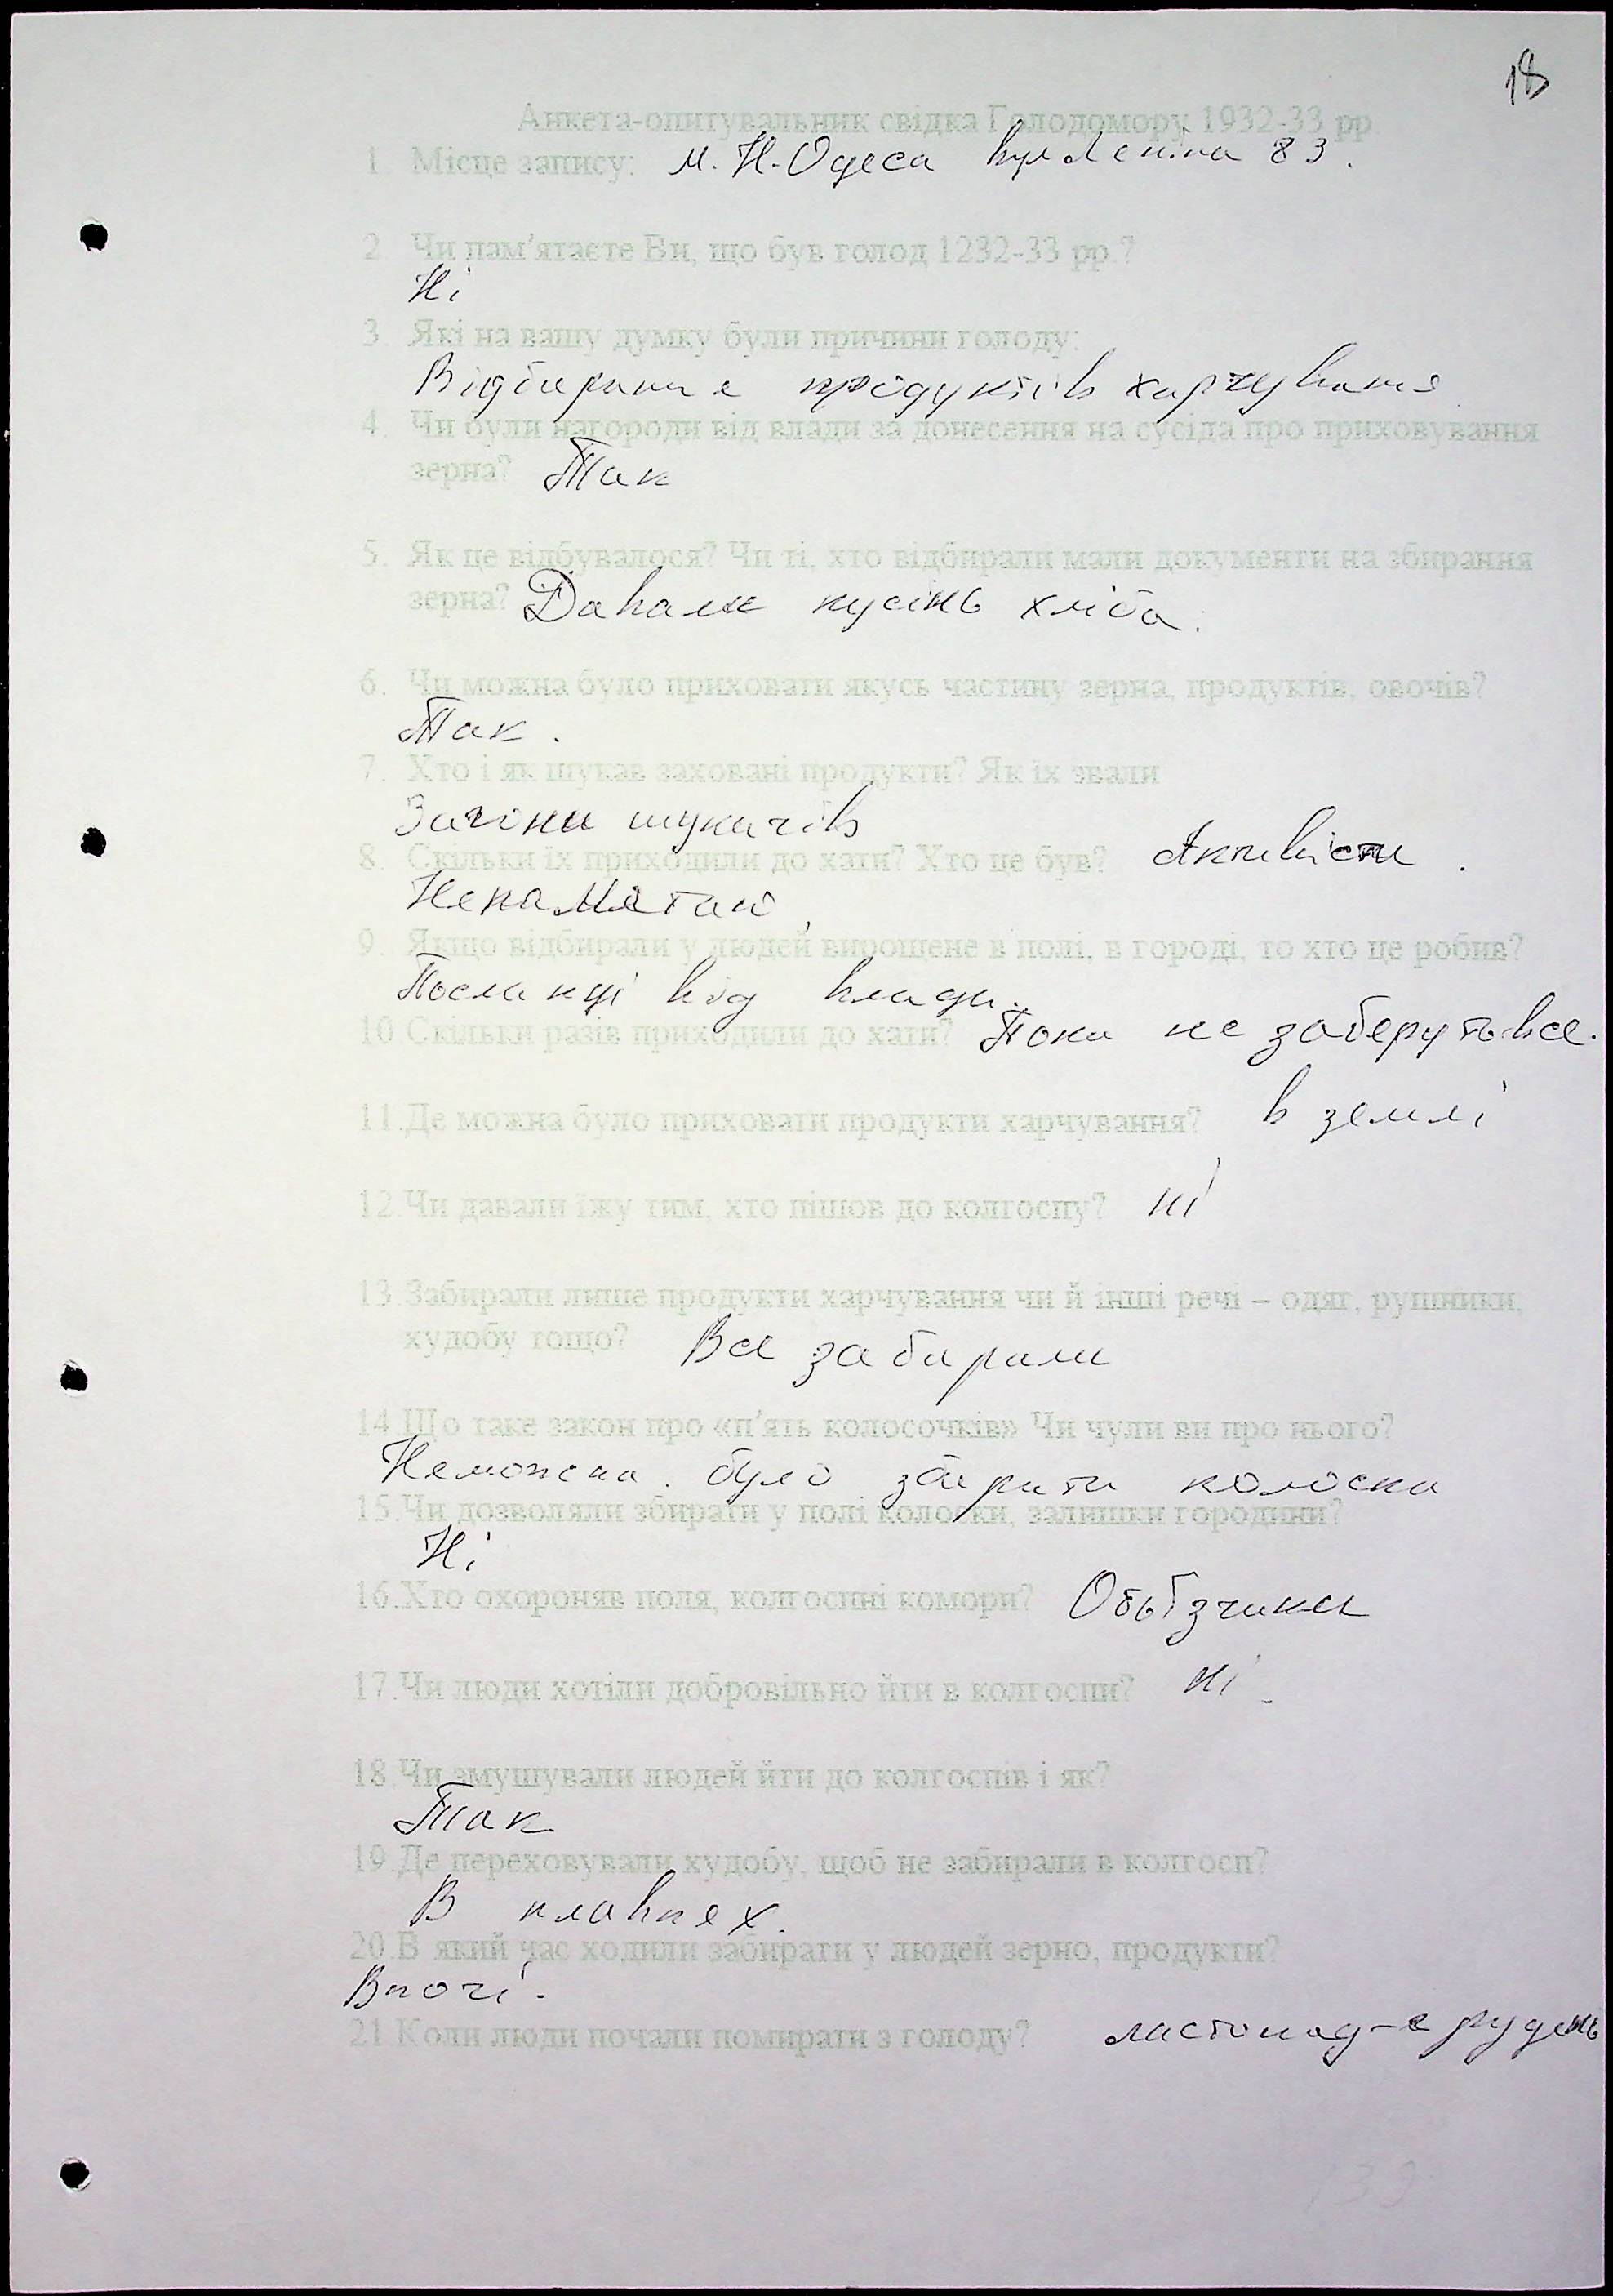 18
Анкета-опитувальник свідка Голодомору 1932-33 рр
1. Місце запису: м. Н-Одеса вул Леніна 83.
2. Чи пам'ятаєте Ви, що був голод 1232-33 рр.?
Ні
3. Які на вашу думку були причини голоду:
Відбирання продуктів харчування
4. Чи були нагороди від влади за донесення на сусіда про приховування
зерна? Так
5. Як це відбувалося? Чи ті, хто відбирали мали документи на збирання
зерна? Давали кусень хліба.
6. Чи можна було приховати якусь частину зерна, продуктів, овочів?
Так.
7. Хто і як шукав заховані продукти? Як їх звали
Загони шукачів
8. Скільки їх приходили до хати? Хто це був? Активісти.
Непамятаю
9. Якщо відбирали у людей вирощене в полі, в городі, то хто це робив?
Посланці від влади.
10. Скільки разів приходили до хати? Поки не заберуть все.
11. Де можна було приховати продукти харчування? в землі
12. Чи давали їжу тим, хто пішов до колгоспу? ні
13. Забирали лише продукти харчування чи й інші речі – одяг, рушники,
худобу тощо? Все забирали
14. Що таке закон про «п'ять колосочків» Чи чули ви про нього?
Неможна було збирати колоски
15. Чи дозволяли збирати у полі колоски, залишки городини?
Ні
16. Хто охороняв поля, колгоспні комори? Обьїзчики
17. Чи люди хотіли добровільно йти в колгоспи? ні.
18. Чи змушували людей йти до колгоспів і як?
Так.
19. Де переховували худобу, щоб не забирали в колгосп?
В плавнях.
20. В який час ходили забирати у людей зерно, продукти?
Вночі.
21. Коли люди почали помирати з голоду? листопад-грудень
139